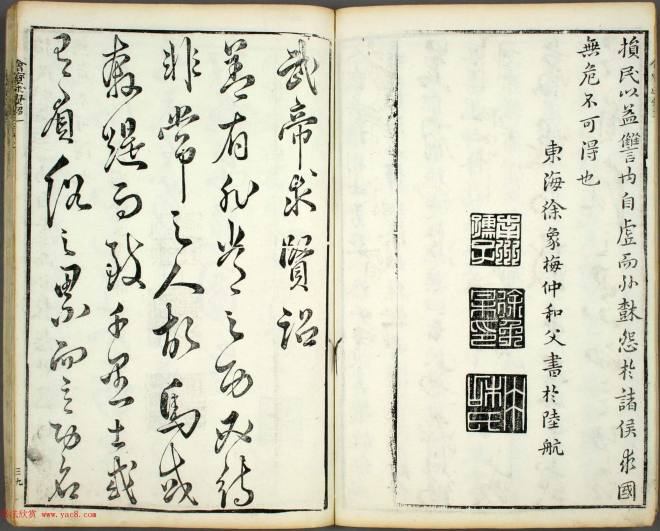 損民以益讐内自虛而外樹怨於諸侯求國
無危不可得也
東海徐象梅仲和父書於陸航
南州孺子
武帝求賢詔
蓋有非常之功必待
非常之人故馬或
奔踶而致千里士或
有負俗之累而立功名
三九
法欣赏 www.yac8.com